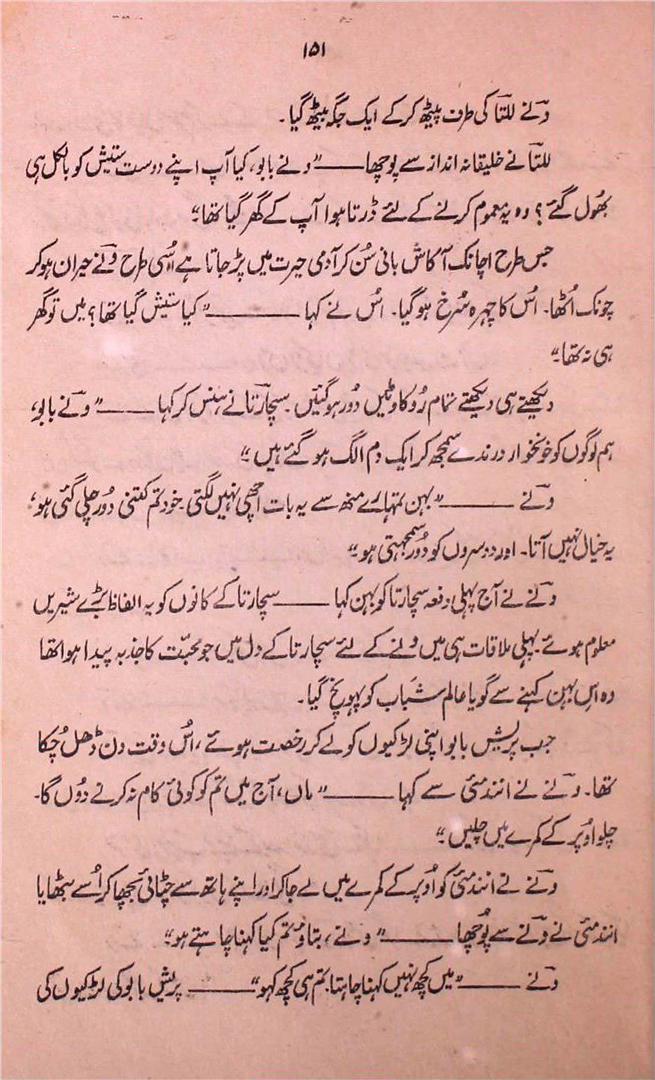 ۱۵۱
ونے للتا کی طرف پیٹھ کر کے ایک جگہ بیٹھ گیا۔
للتا نے خلیقانہ انداز سے پوچھا ــــــ "ونے بابو، کیا آپ اپنے دوست ستیش کو بالکل ہی
بھول گئے؟ وہ یہ معلوم کرنے کے لئے ڈرتا ہوا آپ کے گھر گیا تھا"
جس طرح اچانک آکاش بانی سُن کر آدمی حیرت میں پڑ جاتا ہے اُسی طرح ونے حیران ہو کر
چونک اُٹھا۔ اُس کا چہرہ سُرخ ہو گیا۔ اُس نے کہا ــــــ "کیا ستیش گیا تھا؟ میں تو گھر
ہی نہ تھا۔"
دیکھتے ہی دیکھتے تمام رُکاوٹیں دور ہو گئیں۔ سچارتا نے ہنس کر کہا ــــــ "ونے بابو،
ہم لوگوں کو خونخوار درندے سمجھ کر ایک دم الگ ہو گئے ہیں"
ونے ــــــ "بہن تمہارے منھ سے یہ بات اچھی نہیں لگتی۔ خود تم کتنی دُور چلی گئی ہو،
یہ خیال نہیں آتا۔ اور دوسروں کو دُور سمجھتی ہو"
ونے نے آج پہلی دفعہ سچارتا کو بہن کہا ــــــ سچارتا کے کانوں کو یہ الفاظ بڑے شیریں
معلوم ہوئے۔ پہلی ملاقات ہی میں ونے کے لئے سچارتا کے دل میں جو محبّت کا جذبہ پیدا ہوا تھا
وہ اس بہن کہنے سے گویا عالمِ شباب کو پہونچ گیا۔
جب پریش بابو اپنی لڑکیوں کو لے کر رخصت ہوئے، اُس وقت دن ڈھل چُکا
تھا۔ ونے نے انندمئی سے کہا ــــــ "ماں، آج میں تم کو کوئی کام نہ کرنے دُوں گا۔
چلو اوپر کے کمرے میں چلیں"
ونے نے انندمئی کو اُوپر کے کمرے میں لے جا کر اور اپنے ہاتھ سے چٹائی بچھا کر اُسے بٹھایا
انندمئی نے ونے سے پوچھا ــــــ "ونے، بتاؤ تم کیا کہنا چاہتے ہو"
ونے ــــــ "میں کچھ نہیں کہنا چاہتا۔ تم ہی کچھ کہو" ــــــ پریش بابو کی لڑکیوں کی